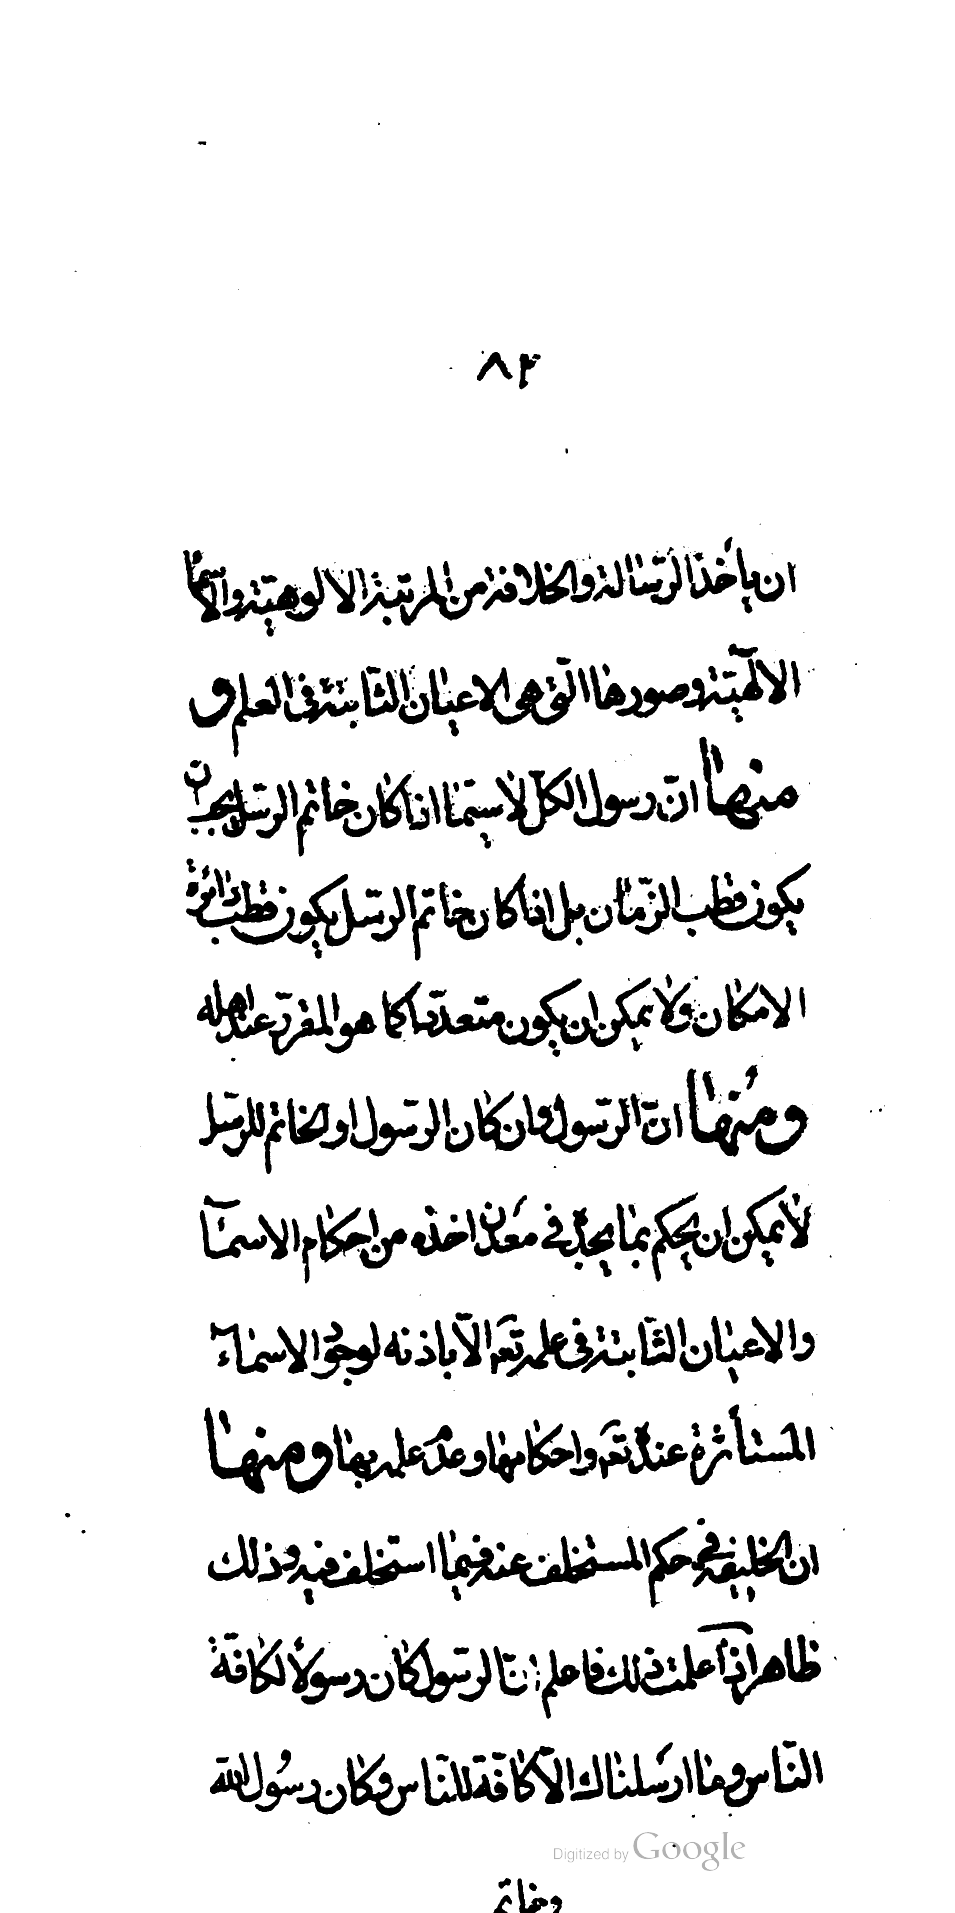 ٨٣
ان يأخذ الرّسالة والخلافة من المرتبة الالوهيّة والاسمآ
الالٓهيّة وصورها الّتى هى الاعيان الثّابتة فى العلم و
منها انّ رسول الكلّ لاسيّما اذا كان خاتم الرّسل يجب ان
يكون قطب الزّمان بل اذا كان خاتم الرّسل يكون قطب دائرة
الامكان ولا يمكن ان يكون متعدّدا كما هو المقرّر عند اهله
ومنها انّ الرّسول وان كان الرّسول او الخاتم للرّسل
لا يمكن ان يحكم بما يجده فى معدن اخذه من احكام الاسمآ
والاعيان الثّابتة فى علمه تعٓ الّا باذنه لوجود الاسماء
المستأثرة عنده تعٓ واحكامها وعدم علمه بها ومنها
ان الخليفة فى حكم المستخلف عنه فيما استخلف فيه وذلك
ظاهر اذا علمت ذلك فاعلم انّ الرّسول كان رسولا لكافّة
النّاس وما ارسلناك الّا كافّة للنّاس وكان رسول اللّه
وخاتم
Digitized by Google